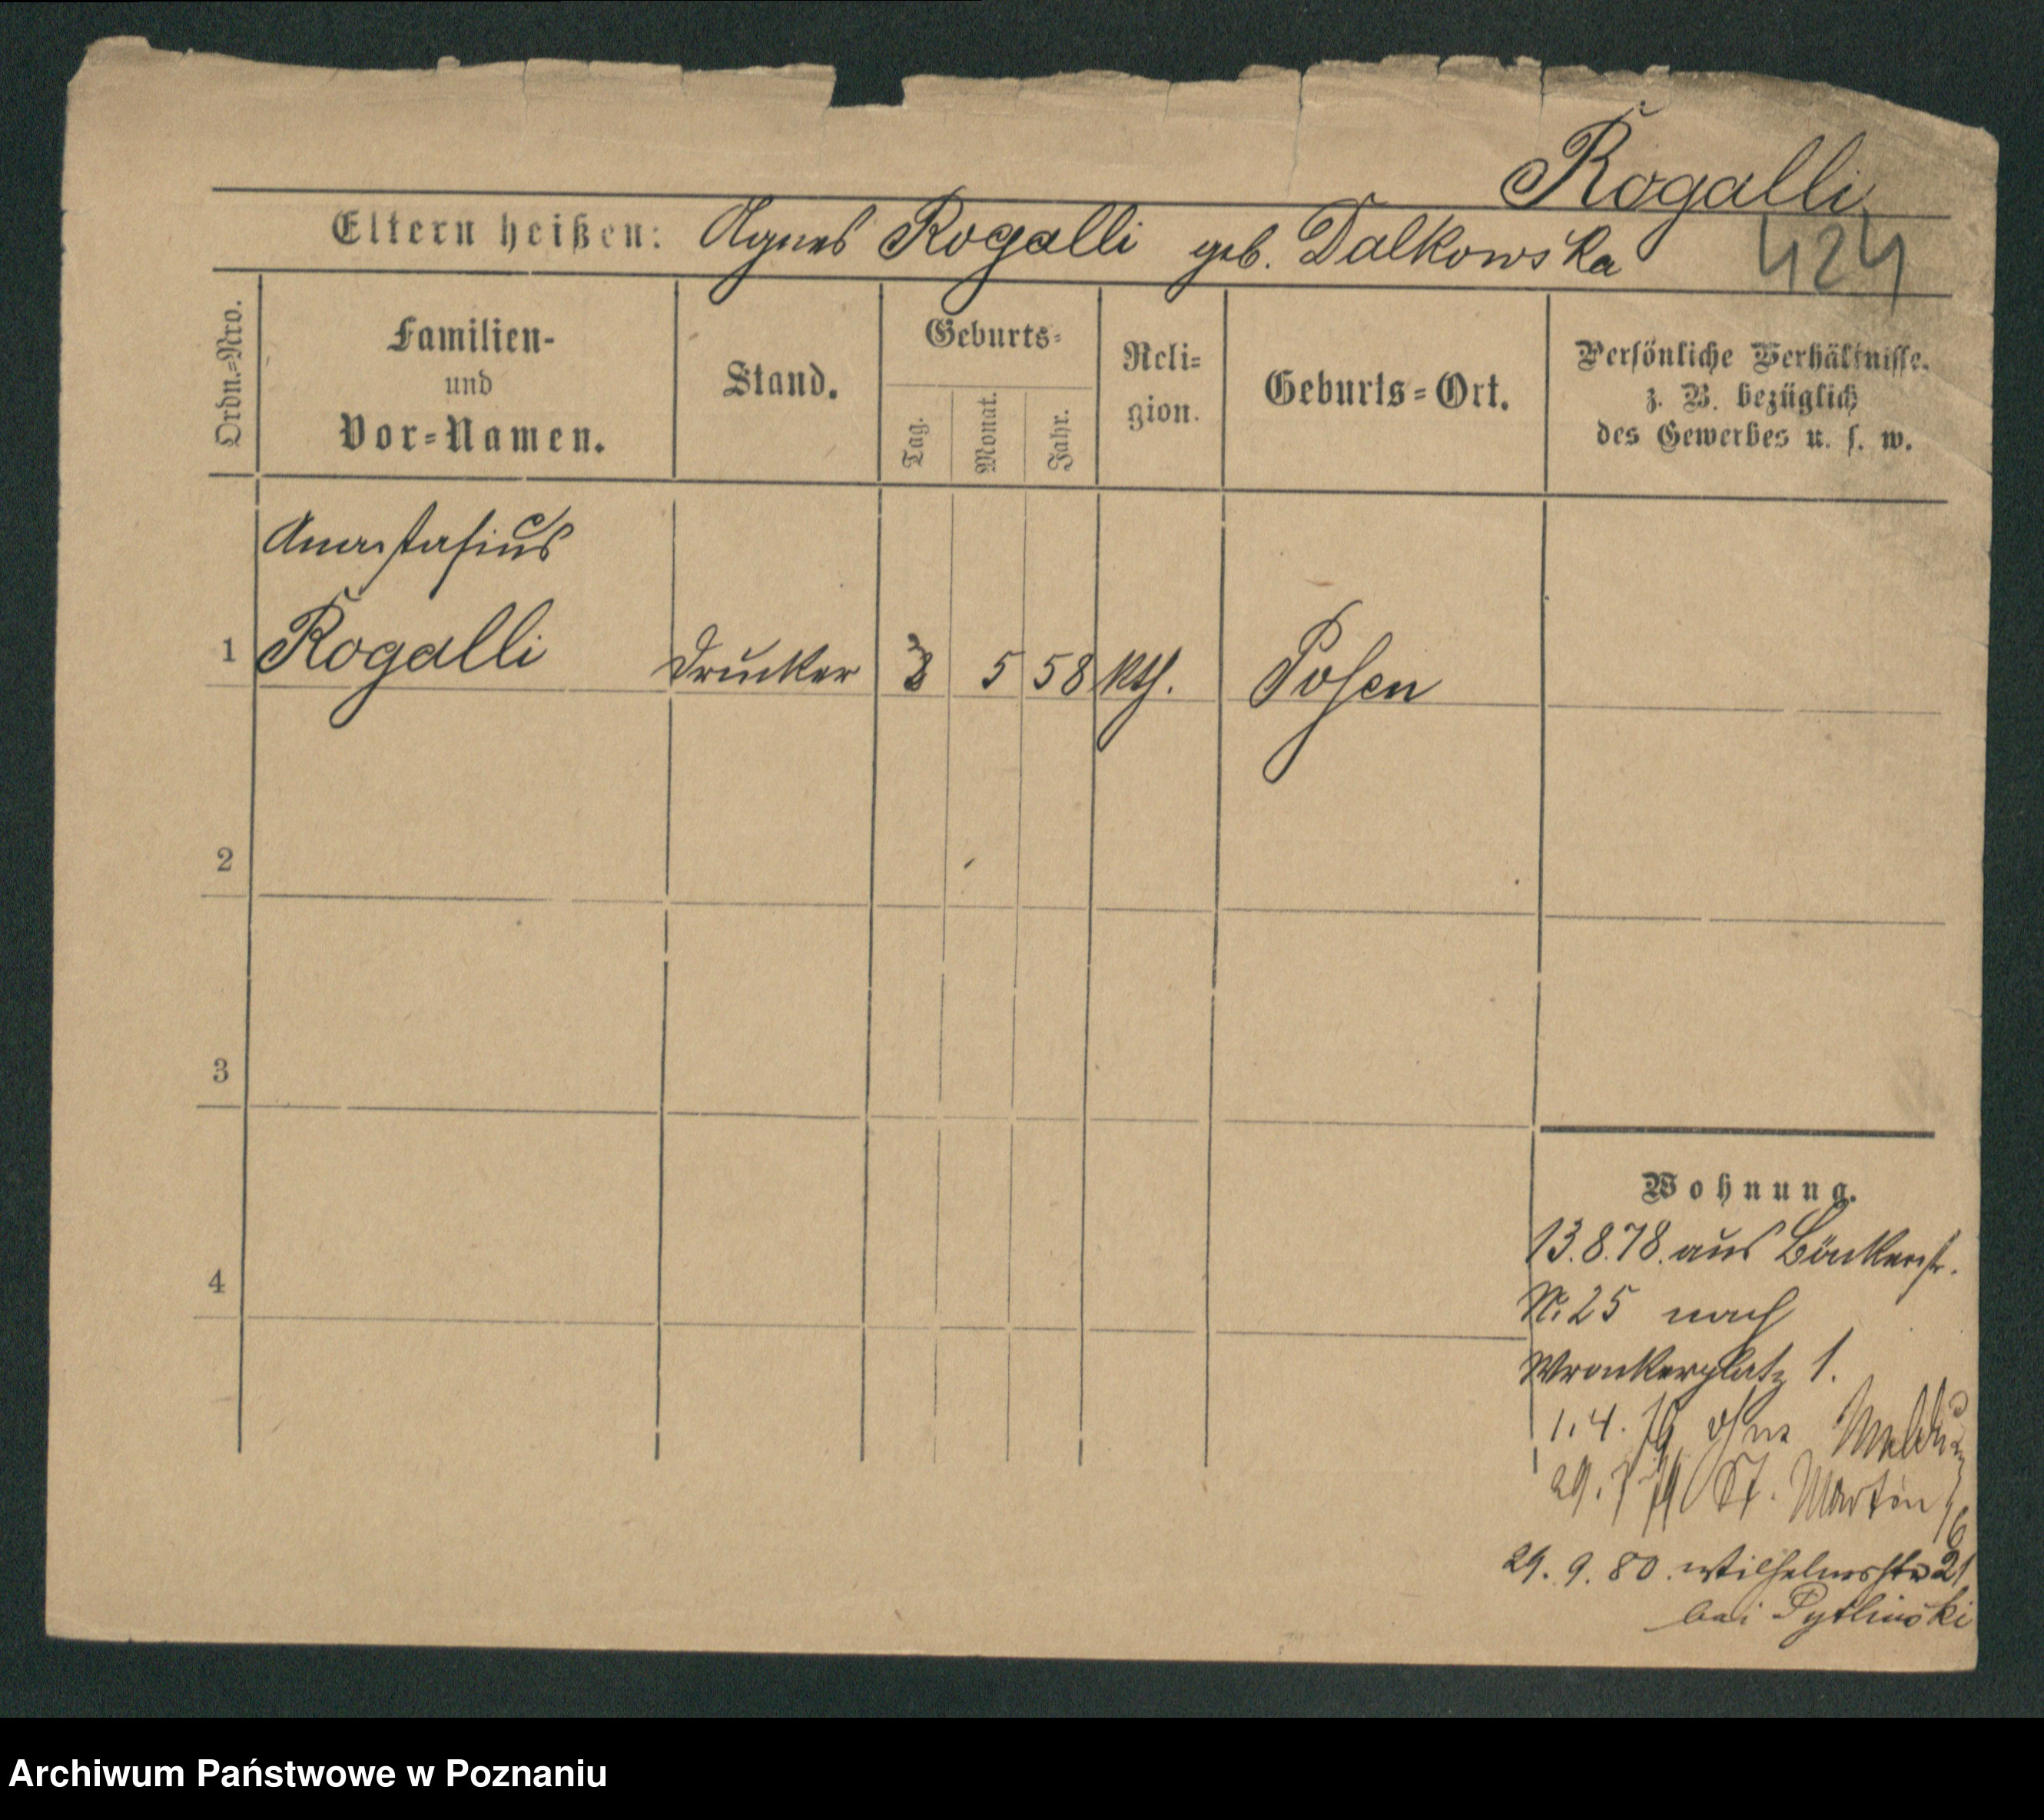 Rogalli
Eltern heißen: Agnes Rogalli geb. Dalkowska
424
Ordn.=Nro.
Familien-
und
Vor=Namen.
Stand.
Geburts=
Tag.
Monat.
Jahr.
Reli=
gion.
Geburts=Ort.
Persönliche Verhältnisse.
z. B. bezüglich
des Gewerbes u. s. w.
Anastasius
1 Rogalli Drucker 5 58 kth. Posen
2
3
4
Wohnung.
13.8.78. aus Bäckerstr.
N. 25 nach
Wronkerplatz 1.
1.4. 79 ohne Meldung
29.7 79 St. Martin
29. 9. 80. Wilhelmsstr 21
bei Pytlinski
Archiwum Państwowe w Poznaniu